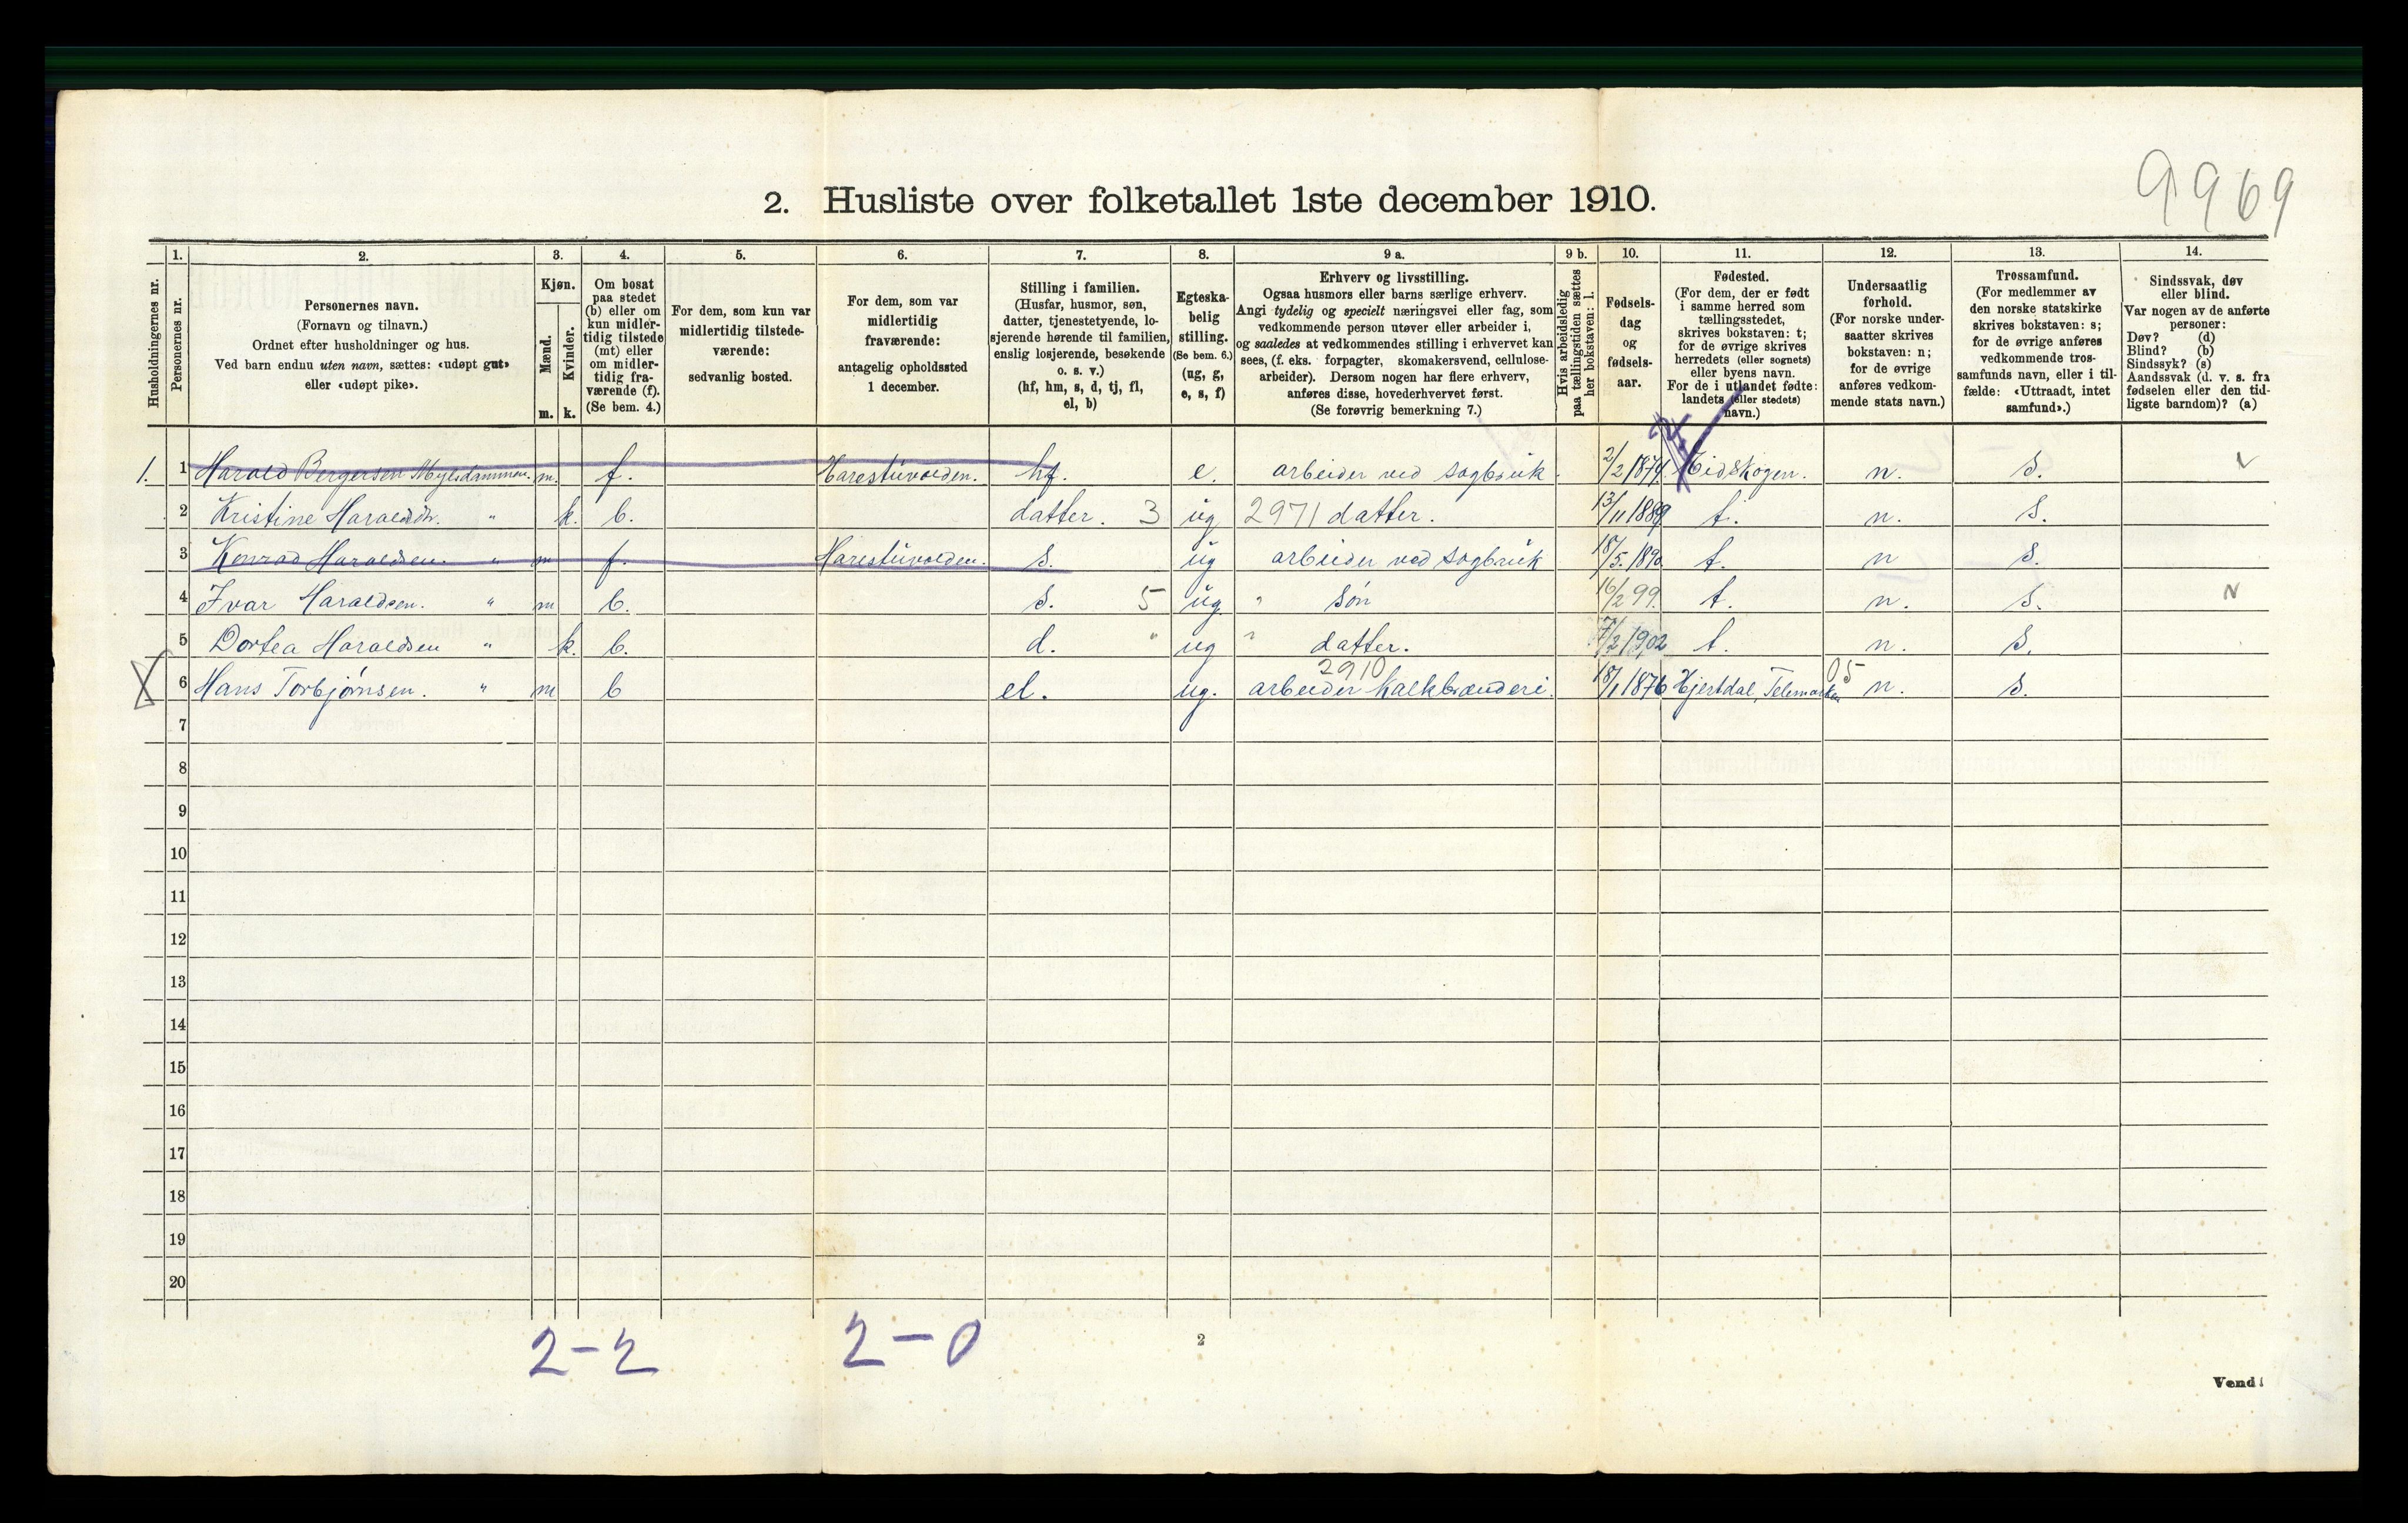 9969
2. Husliste over folketallet 1ste december 1910.
Husholdningernes nr.
1. Personernes nr.
2. Personernes navn. (Fornavn og tilnavn.) Ordnet efter husholdninger og hus. Ved barn endnu uten navn, sættes: «udøpt gut» eller «udøpt pike».
3. Kjøn. Mænd. m. Kvinder. k.
4. Om bosat paa stedet (b) eller om kun midlertidig tilstede (mt) eller om midlertidig fraværende (f). (Se bem. 4.)
5. For dem, som kun var midlertidig tilstedeværende: sedvanlig bosted.
6. For dem, som var midlertidig fraværende: antagelig opholdssted 1 december.
7. Stilling i familien. (Husfar, husmor, søn, datter, tjenestetyende, losjerende hørende til familien, enslig losjerende, besøkende o. s. v.) (hf, hm, s, d, tj, fl, el, b)
8. Egteskabelig stilling. (Se bem. 6.) (ug, g, e, s, f)
9 a. Erhverv og livsstilling. Ogsaa husmors eller barns særlige erhverv. Angi tydelig og specielt næringsvei eller fag, som vedkommende person utøver eller arbeider i, og saaledes at vedkommendes stilling i erhvervet kan sees, (f. eks. forpagter, skomakersvend, cellulosearbeider). Dersom nogen har flere erhverv, anføres disse, hovederhvervet først. (Se forøvrig bemerkning 7.)
9 b. Hvis arbeidsledig paa tællingstiden sættes her bokstaven: l.
10. Fødselsdag og fødselsaar.
11. Fødested. (For dem, der er født i samme herred som tællingsstedet, skrives bokstaven: t; for de øvrige skrives herredets (eller sognets) eller byens navn. For de i utlandet fødte: landets (eller stedets) navn.)
12. Undersaatlig forhold. (For norske undersaatter skrives bokstaven: n; for de øvrige anføres vedkommende stats navn.)
13. Trossamfund. (For medlemmer av den norske statskirke skrives bokstaven: s; for de øvrige anføres vedkommende trossamfunds navn, eller i tilfælde: «Uttraadt, intet samfund».)
14. Sindssvak, døv eller blind. Var nogen av de anførte personer: Døv? (d) Blind? (b) Sindssyk? (s) Aandssvak (d. v. s. fra fødselen eller den tidligste barndom)? (a)
1. 1 Harald Bergersen Myledammen. m. f. Harestuvolden. hf. e. arbeider ved sagbruk 2/2 1874. Eidskogen. n. S.
2 Kristine Haraldsdtr. " k. b. datter. 3 ug 2971 datter. 13/11 1889 t. n. S.
3 Konrad Haraldsen. " m f. Harestuvolden. s. ug arbeider ved sagbruk 18/5. 1890. t. n S.
4 Ivar Haraldsen. " m b. s. 5 ug. " søn 16/2 99. t. n. S.
5 Dortea Haraldsen " k. b. d. " ug " datter. 7/2 1902 t. n. S.
6 Hans Torbjørnsen. " m b el. ug. arbeider Kalkbrænderi. 2910 18/1 1876 Hjertdal, Telemarken 05 n. S.
7
8
9
10
11
12
13
14
15
16
17
18
19
20
2-2 2-0
2
Vend!